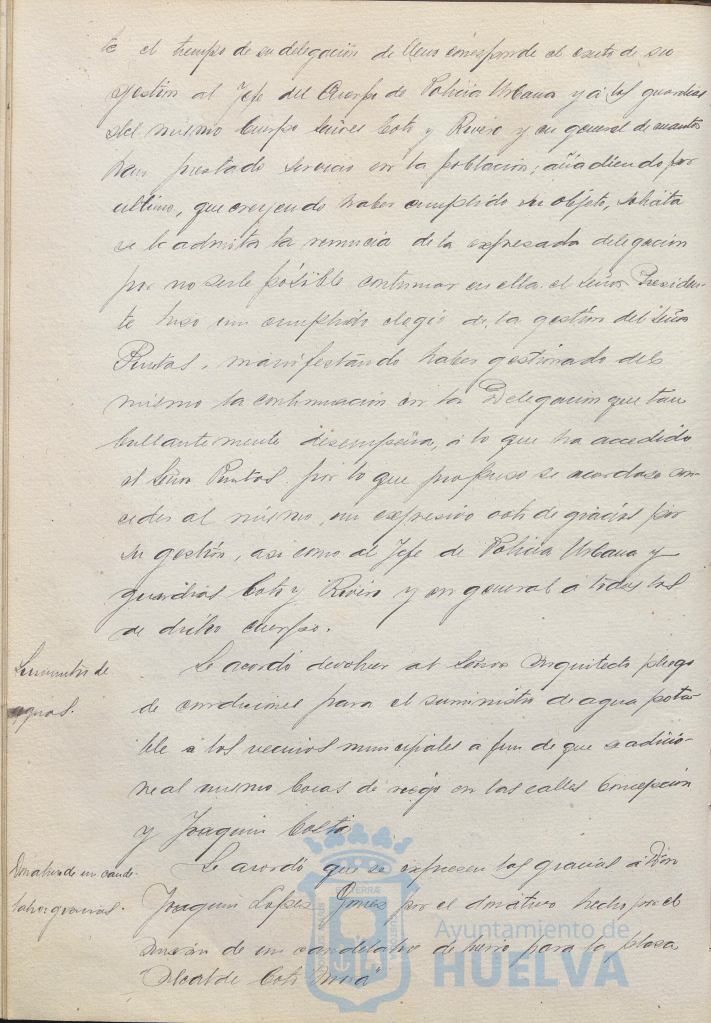 te el tiempo de su delegación de lleno corresponde el exito de su
gestión al Jefe del Cuerpo de Policia Urbana y á los guardias
del mismo Cuerpo Señores Coto y Rivero y en general de cuantos
han prestado servicio en la población; añadiendo, por
ultimo, que creyendo haber cumplido su objeto, solicita
se le admita la renuncia de la expresada delegación
por no serle posible continuar en ella. el Señor Presiden-
te hizo un cumplido elogio de la gestión del Señor
Puntas, manifestando haber gestionado del
mismo la continuación en la Delegación que tan
brillantemente desempeña, á lo que ha accedido
el Señor Puntas, por lo que propuso se acordase con-
ceder al mismo, un expresivo voto de gracias por
su gestión, asi como al Jefe de Policia Urbana y
guardias Coto y Rivero y en general á todos los
de dicho cuerpo.
Suministro de
aguas.
Se acordó devolver al Señor Arquitecto pliego
de condiciones para el suministro de agua pota-
ble á los vecinos municipales a fin de que se adicio-
ne al mismo bocas de riego en las calles Concepción
y Joaquin Costa
Donativo de un cande-
labro gracias.
Se acordó que se expresen las gracias á Don
Joaquin Lopez Gomez por el donativo hecho por el
de un candelabro de hierro para la plaza
"Alcalde Coto Mora"
Ayuntamiento de
HUELVA